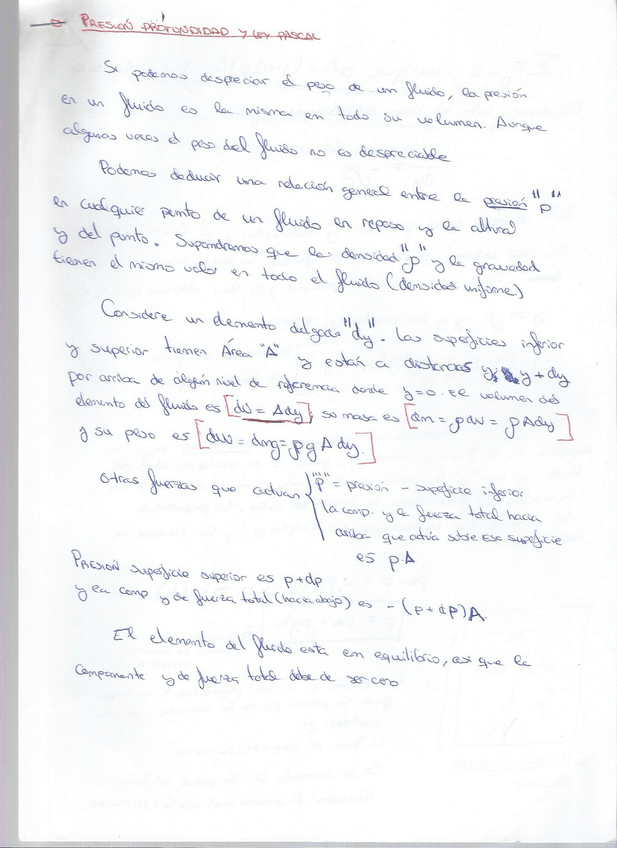 PRESIÓN PROFUNDIDAD Y LEY PASCAL
Si podemos despreciar el peso de un fluido, la presión
en un fluido es la misma en todo su volumen. Aunque
algunas veces el peso del fluido no es despreciable
Podemos deducir una relación general entre la presión "p"
en cualquier punto de un fluido en reposo y la altura
y del punto. Supondremos que la densidad "ρ" y la gravedad
tienen el mismo valor en todo el fluido (densidad uniforme)
Considere un elemento delgado "dy". Las superficies inferior
y superior tienen Área "A" y están a distancias y, y+dy
por arriba de algún nivel de referencia donde y=0. El volumen del
elemento del fluido es [dV = Ady], su masa es [dm = ρdV = ρAdy]
y su peso es [dW = dmg = ρgAdy.]
Otras fuerzas que actúan "p" = presión - superficie inferior
la comp. y la fuerza total hacia
arriba que actúa sobre esa superficie
es p.A
PRESIÓN superficie superior es p+dp
y la comp y de fuerza total (hacia abajo) es -(p+dp)A.
El elemento del fluido esta en equilibrio, asi que la
componente y de fuerza total debe de ser cero